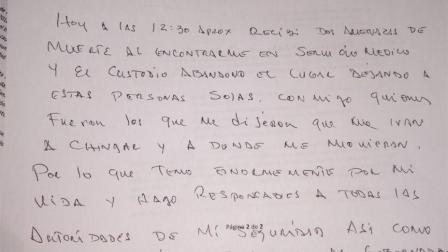 Hoy A las 12:30 Aprox Recibi Dos AmenAzas de
MueRte Al encontrARme en SeRvicio Medico
Y el Custodio AbAndono el lugAR dejando A
estAs PeRsonAs SolAs. Con migo quienes
FueRon los que me dijeRon que me IvAn
A ChingAR y A donde me MovieRAn.
PoR lo que temo enoRmemente poR mi
VidA y HAgo ResponsAbles A todAs lAs
AutoRidAdes de Mi seguRidAd Asi como
Página 2 de 2